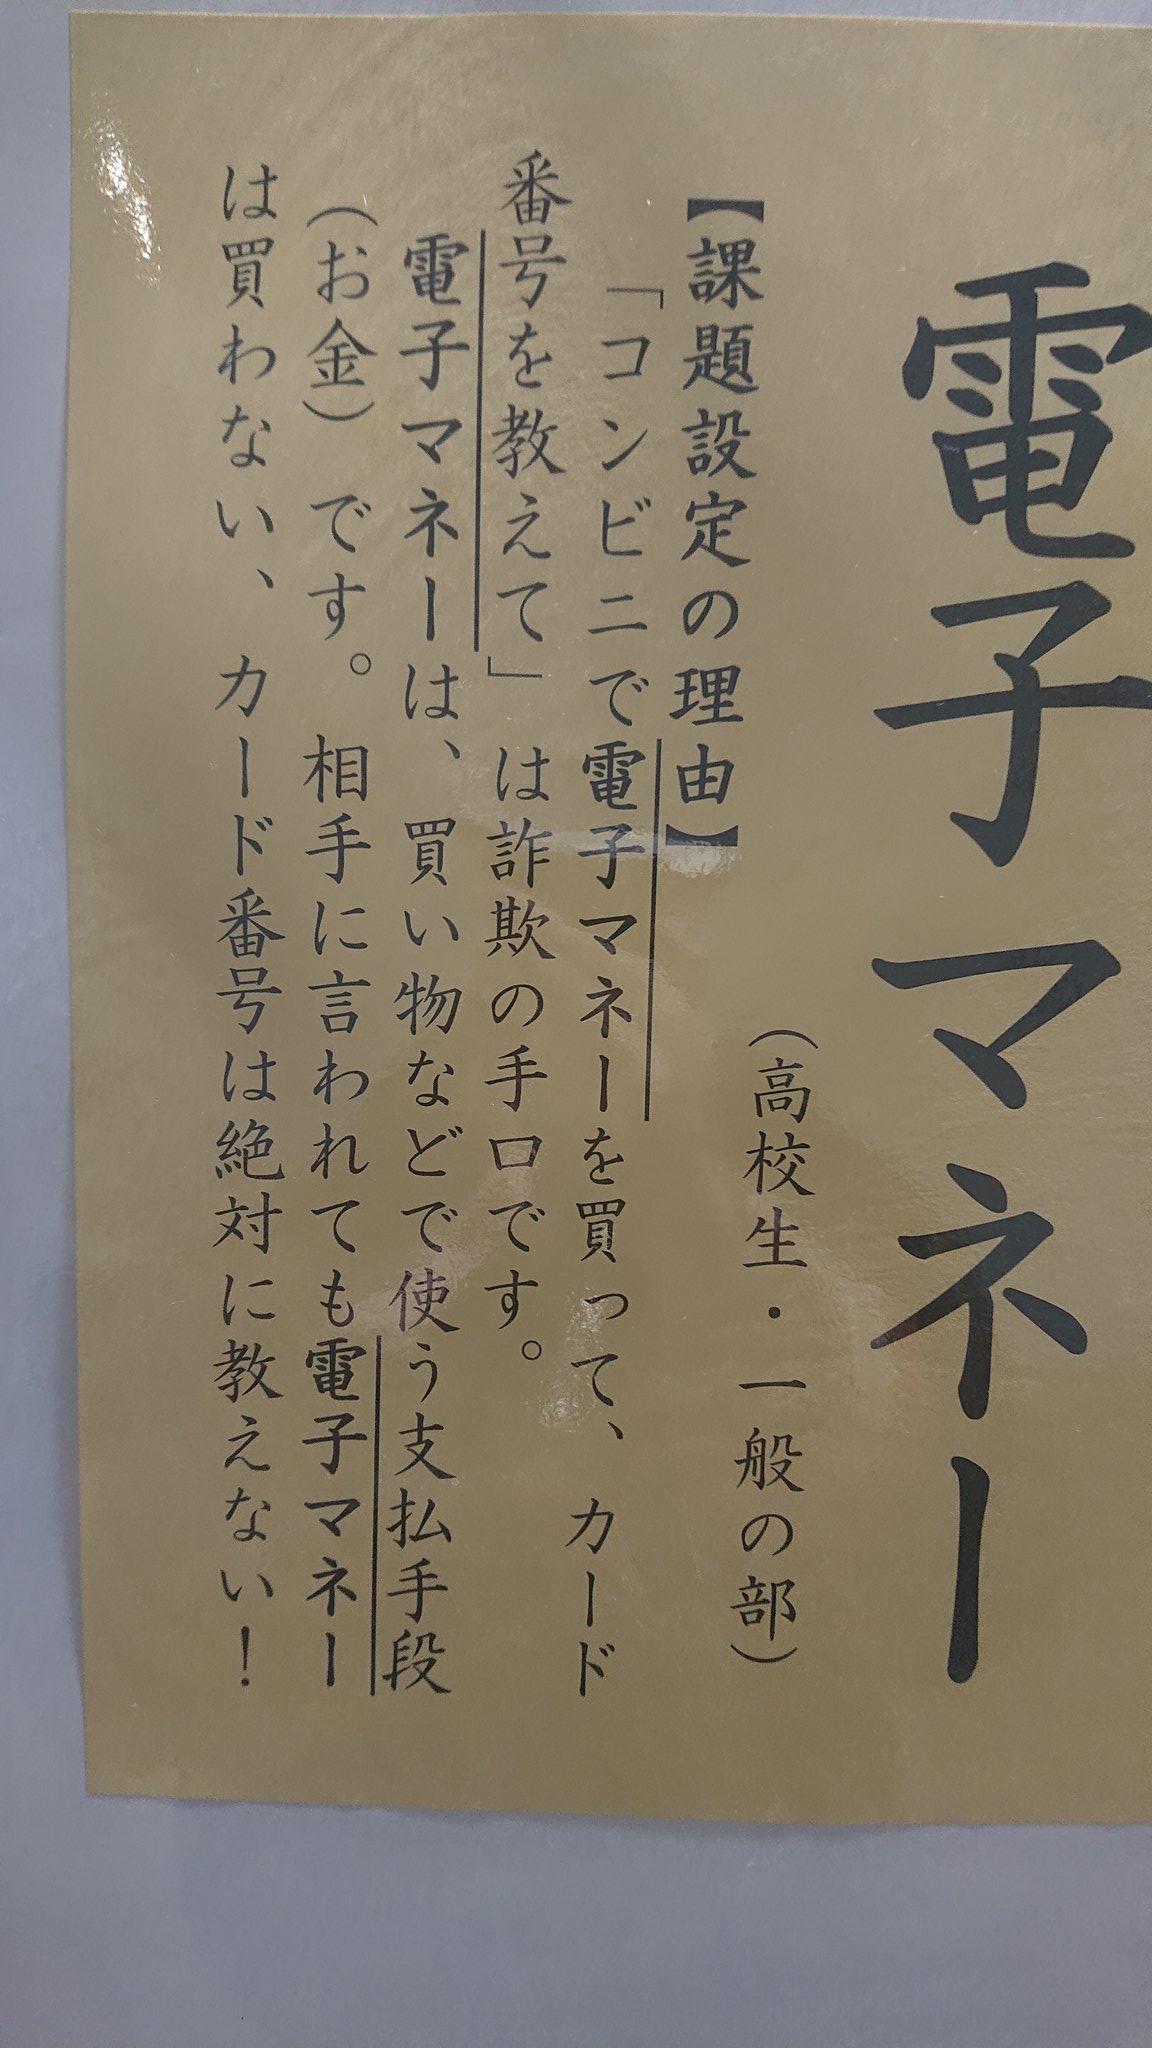 電子マネー
（高校生・一般の部）
【課題設定の理由】
「コンビニで電子マネーを買って、カード
番号を教えて」は詐欺の手口です。
電子マネーは、買い物などで使う支払手段
（お金）です。相手に言われても電子マネー
は買わない、カード番号は絶対に教えない！